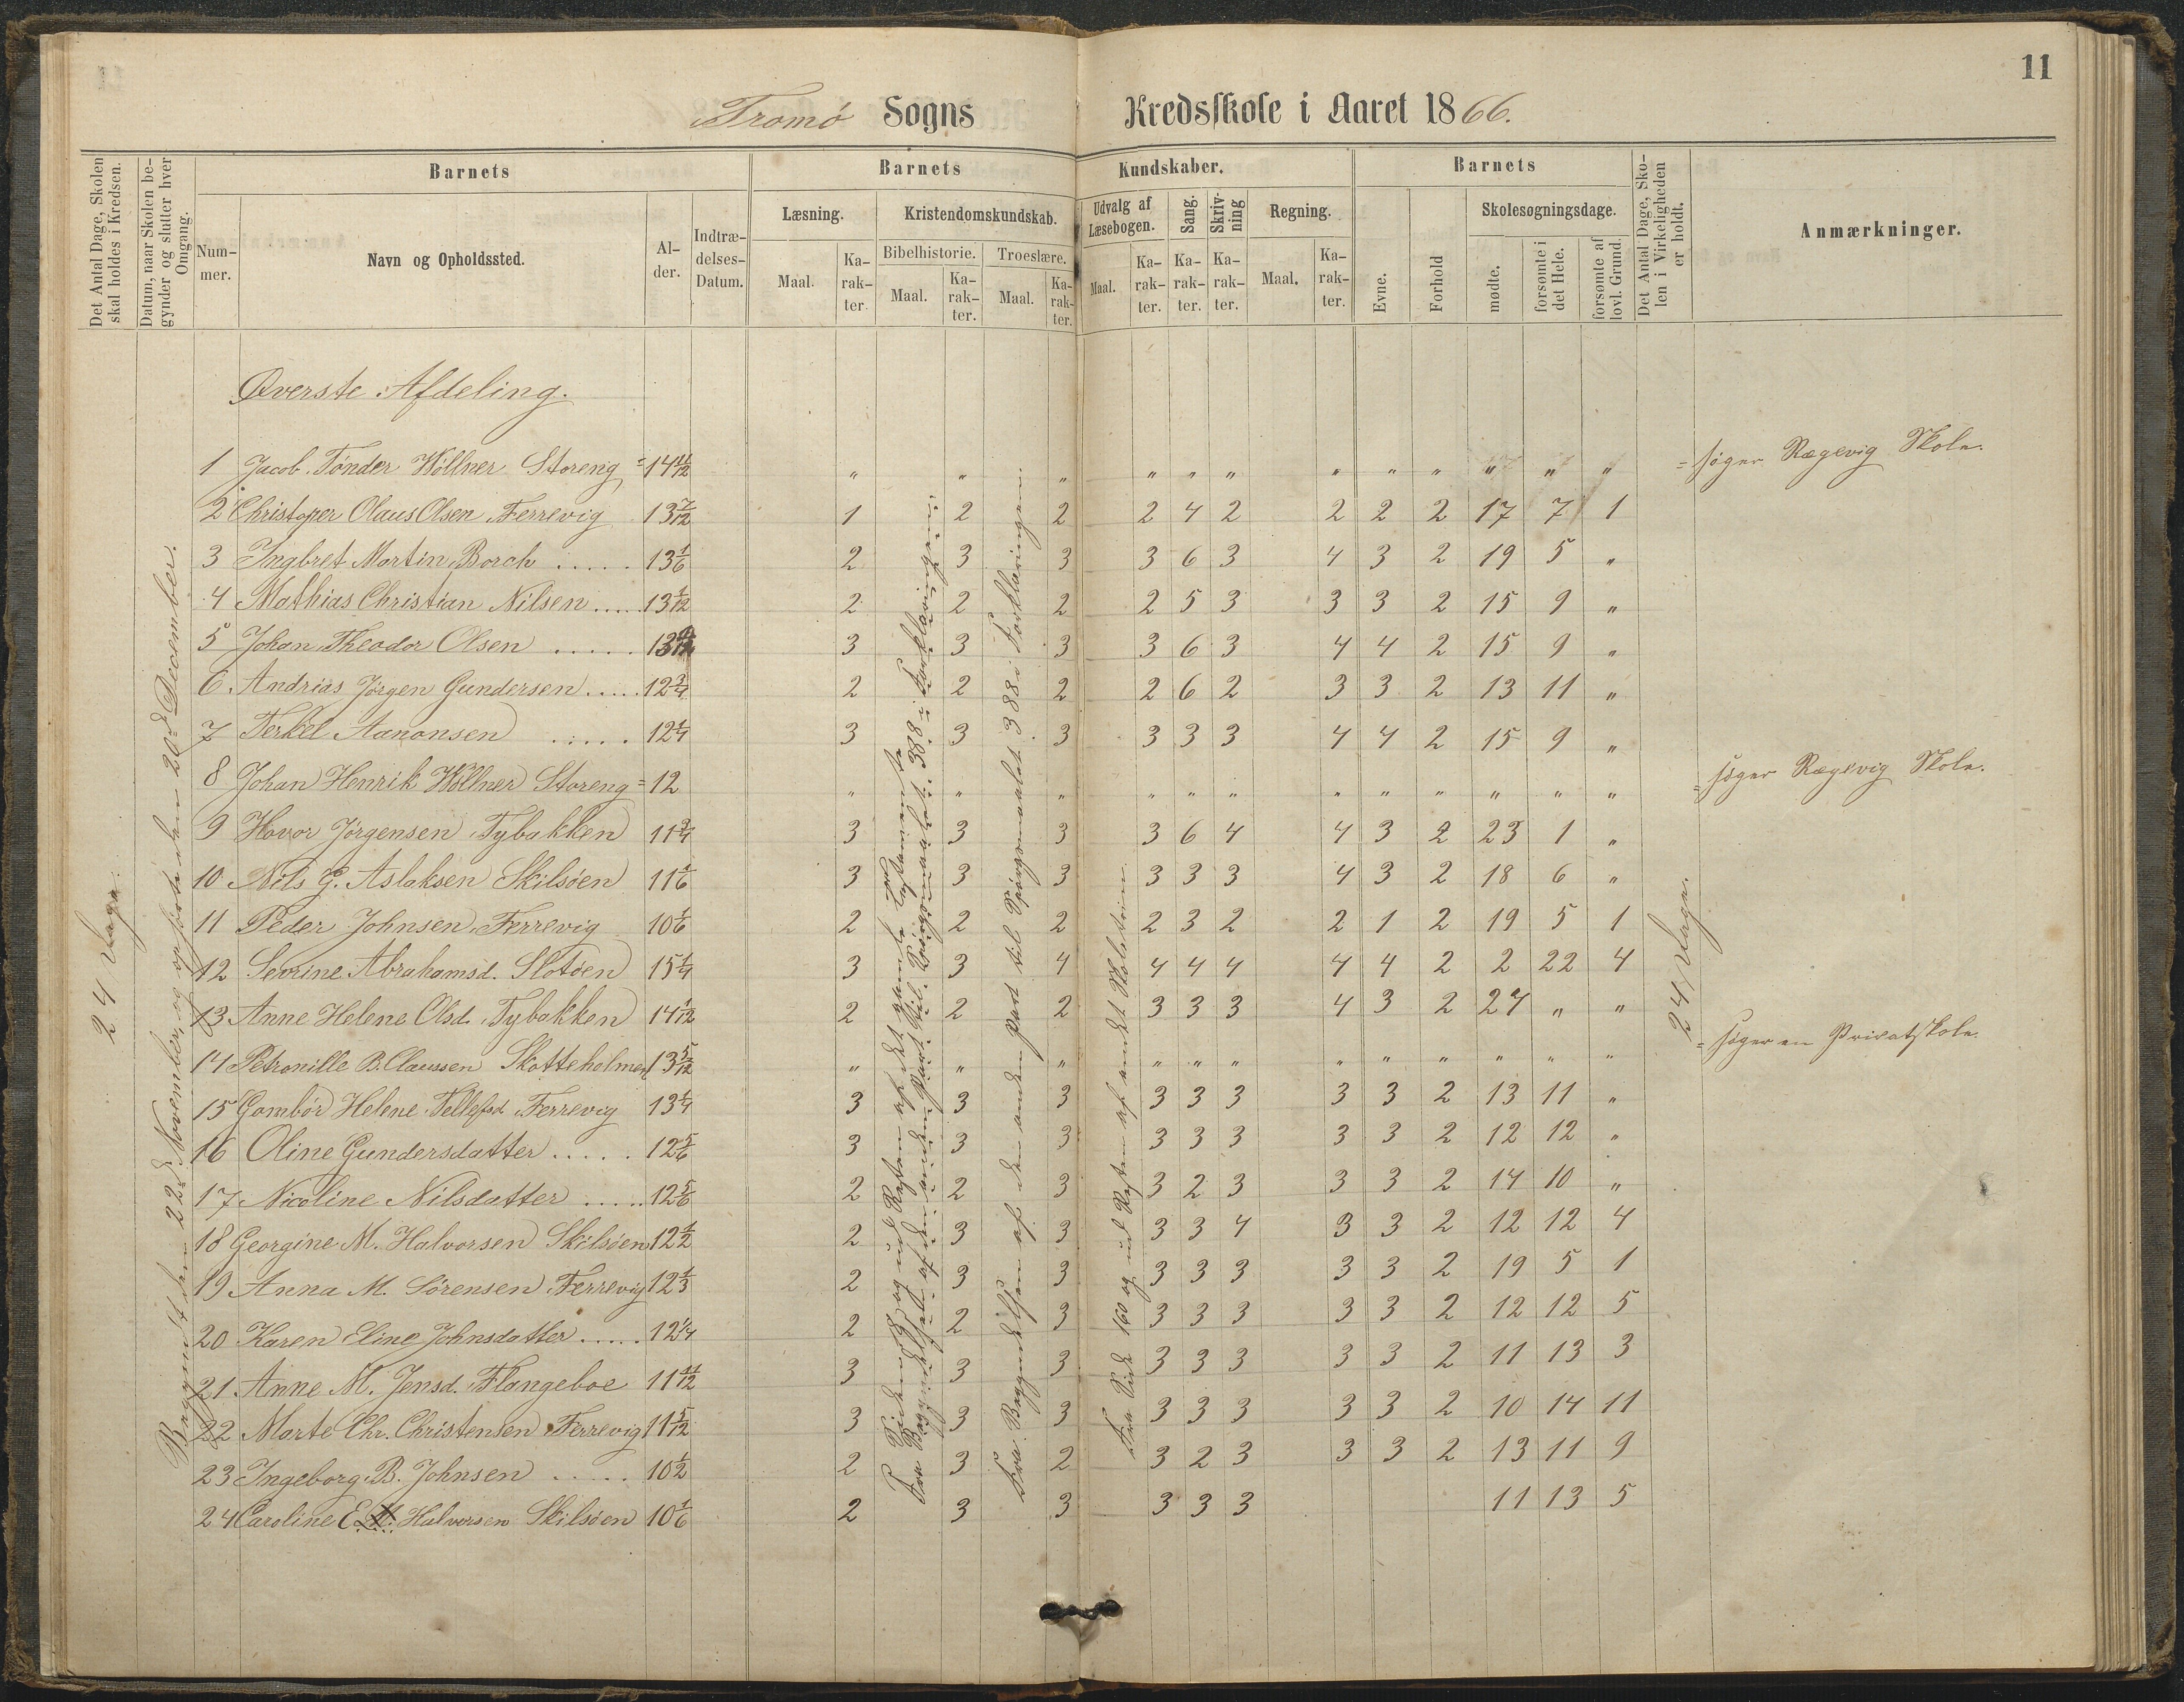 11
Tromö Sogns Kredsskole i Aaret 1866.
Det Antal Dage, Skolen skal holdes i Kredsen.
Datum, naar Skolen begynder og slutter hver Omgang.
Barnets
Nummer.
Navn og Opholdssted.
Alder.
Indtrædelses-Datum.
Barnets Kundskaber.
Læsning.
Maal.
Karakter.
Kristendomskundskab.
Bibelhistorie.
Maal.
Karakter.
Troeslære.
Maal.
Karakter.
Udvalg af Læsebogen.
Maal.
Karakter.
Sang.
Karakter.
Skrivning
Karakter.
Regning.
Maal.
Karakter.
Barnets
Evne.
Forhold
Skolesøgningsdage.
mødte.
forsømte i det Hele.
forsømte af lovl. Grund.
Det Antal Dage, Skolen i Virkeligheden er holdt.
Anmærkninger.
Øverste Afdeling.
24 Dage.
Begyndt den 22d November, og opholdt den 20d December.
1 Jacob Tønder Wöllner Storeng = 14 11/12 " " " " " " " " " " " " = søger Rægevig Skole.
2 Christoper Olaus Olsen Ferrevig 13 7/12 1 2 2 2 4 2 2 2 2 17 7 1
3 Ingbret Martin Borch ..... 13 1/6 2 3 3 3 6 3 4 3 2 19 5 "
4 Mathias Christian Nilsen ..... 13 1/12 2 2 2 2 5 3 3 3 2 15 9 "
5 Johan Theodor Olsen ..... 3 3 3 3 6 3 4 4 2 15 9 "
6 Andrias Jörgen Gundersen ..... 12 3/4 2 2 2 2 6 2 3 3 2 13 11 "
7 Terkel Aanonsen ..... 12 1/4 3 3 3 3 3 3 4 4 2 15 9 "
8 Johan Henrik Wöllner Storeng = 12 " " " " " " " " " " " " = søger Rægevig Skole.
9 Hovor Jörgensen Tybakken 11 3/4 3 3 3 3 6 4 4 3 2 23 1 "
10 Nils G. Aslaksen Skilsöen 11 1/6 3 3 3 3 3 3 4 3 2 18 6 "
11 Peder Johnsen Ferrevig 10 1/6 2 2 2 2 3 2 2 1 2 19 5 1
12 Sevrine Abrahamsd. Slotöen 15 1/4 3 3 4 4 4 4 4 4 2 2 22 4
13 Anne Helene Olsd. Tybakken 14 1/12 2 2 2 3 3 3 4 3 2 24 " "
14 Petronille B. Claussen Skotteholmen 13 5/12 " " " " " " " " " " " " = søger en Privatskole.
15 Gombör Helene Tellefsd. Ferrevig 13 1/4 3 3 3 3 3 3 3 3 2 13 11 "
16 Oline Gundersdatter ..... 12 5/6 3 3 3 3 3 3 3 3 2 12 12 "
17 Nicoline Nilsdatter ..... 12 5/6 2 2 3 3 2 3 3 3 2 14 10 "
18 Georgine M. Halvorsen Skilsöen 12 1/2 2 3 3 3 3 4 3 3 2 12 12 4
19 Anna M. Sörensen Ferrevig 12 1/3 2 3 3 3 3 3 3 3 2 19 5 1
20 Karen Eline Johnsdatter ..... 12 1/4 2 2 3 3 3 3 3 3 2 12 12 5
21 Anne M. Jensd. Flangeboe 11 11/12 3 3 3 3 3 3 3 3 2 11 13 3
22 Marte Chr. Christensen Ferrevig 11 5/12 3 3 3 3 3 3 3 3 2 10 14 11
23 Ingeborg B. Johnsen ..... 10 1/2 2 3 2 3 2 3 3 3 2 13 11 9
24 Caroline E. Halvorsen Skilsöen 10 1/6 2 3 3 3 3 3 11 13 5
Fra Siden og ud Resten af det gamle Testamente
Fra Begyndelsen af den anden Part til Spörgsmaalet: 388 i Forklaringen
Fra Begyndelsen af den anden Part til Spörgsmaalet 388 i Forklaringen
Fra Side 160 og ud Resten af andet Skoletrin
24 Dage.